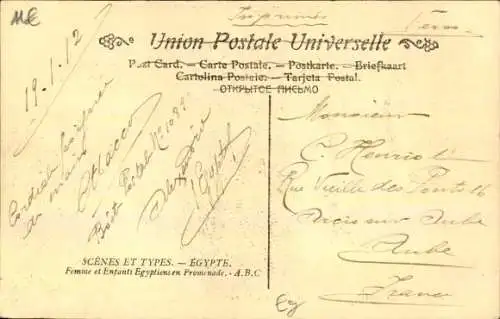 ME
Imprimés
Union Postale Universelle
Post Card. — Carte Postale. — Postkarte. — Briefkaart
Cartolina Postale. — Tarjeta Postal.
ОТКРЫТСЕ ПИСЬМО
19.1.12
Cordiales
Boît Postal No 1089
Alexandrie
Egypte
SCÈNES ET TYPES. — ÉGYPTE.
Femme et Enfants Egyptiens en Promenade. - A. B. C
Monsieur
C. Henriot
Rue Vieille des Ponts 16
Arcis sur Aube
Aube
France
Eg